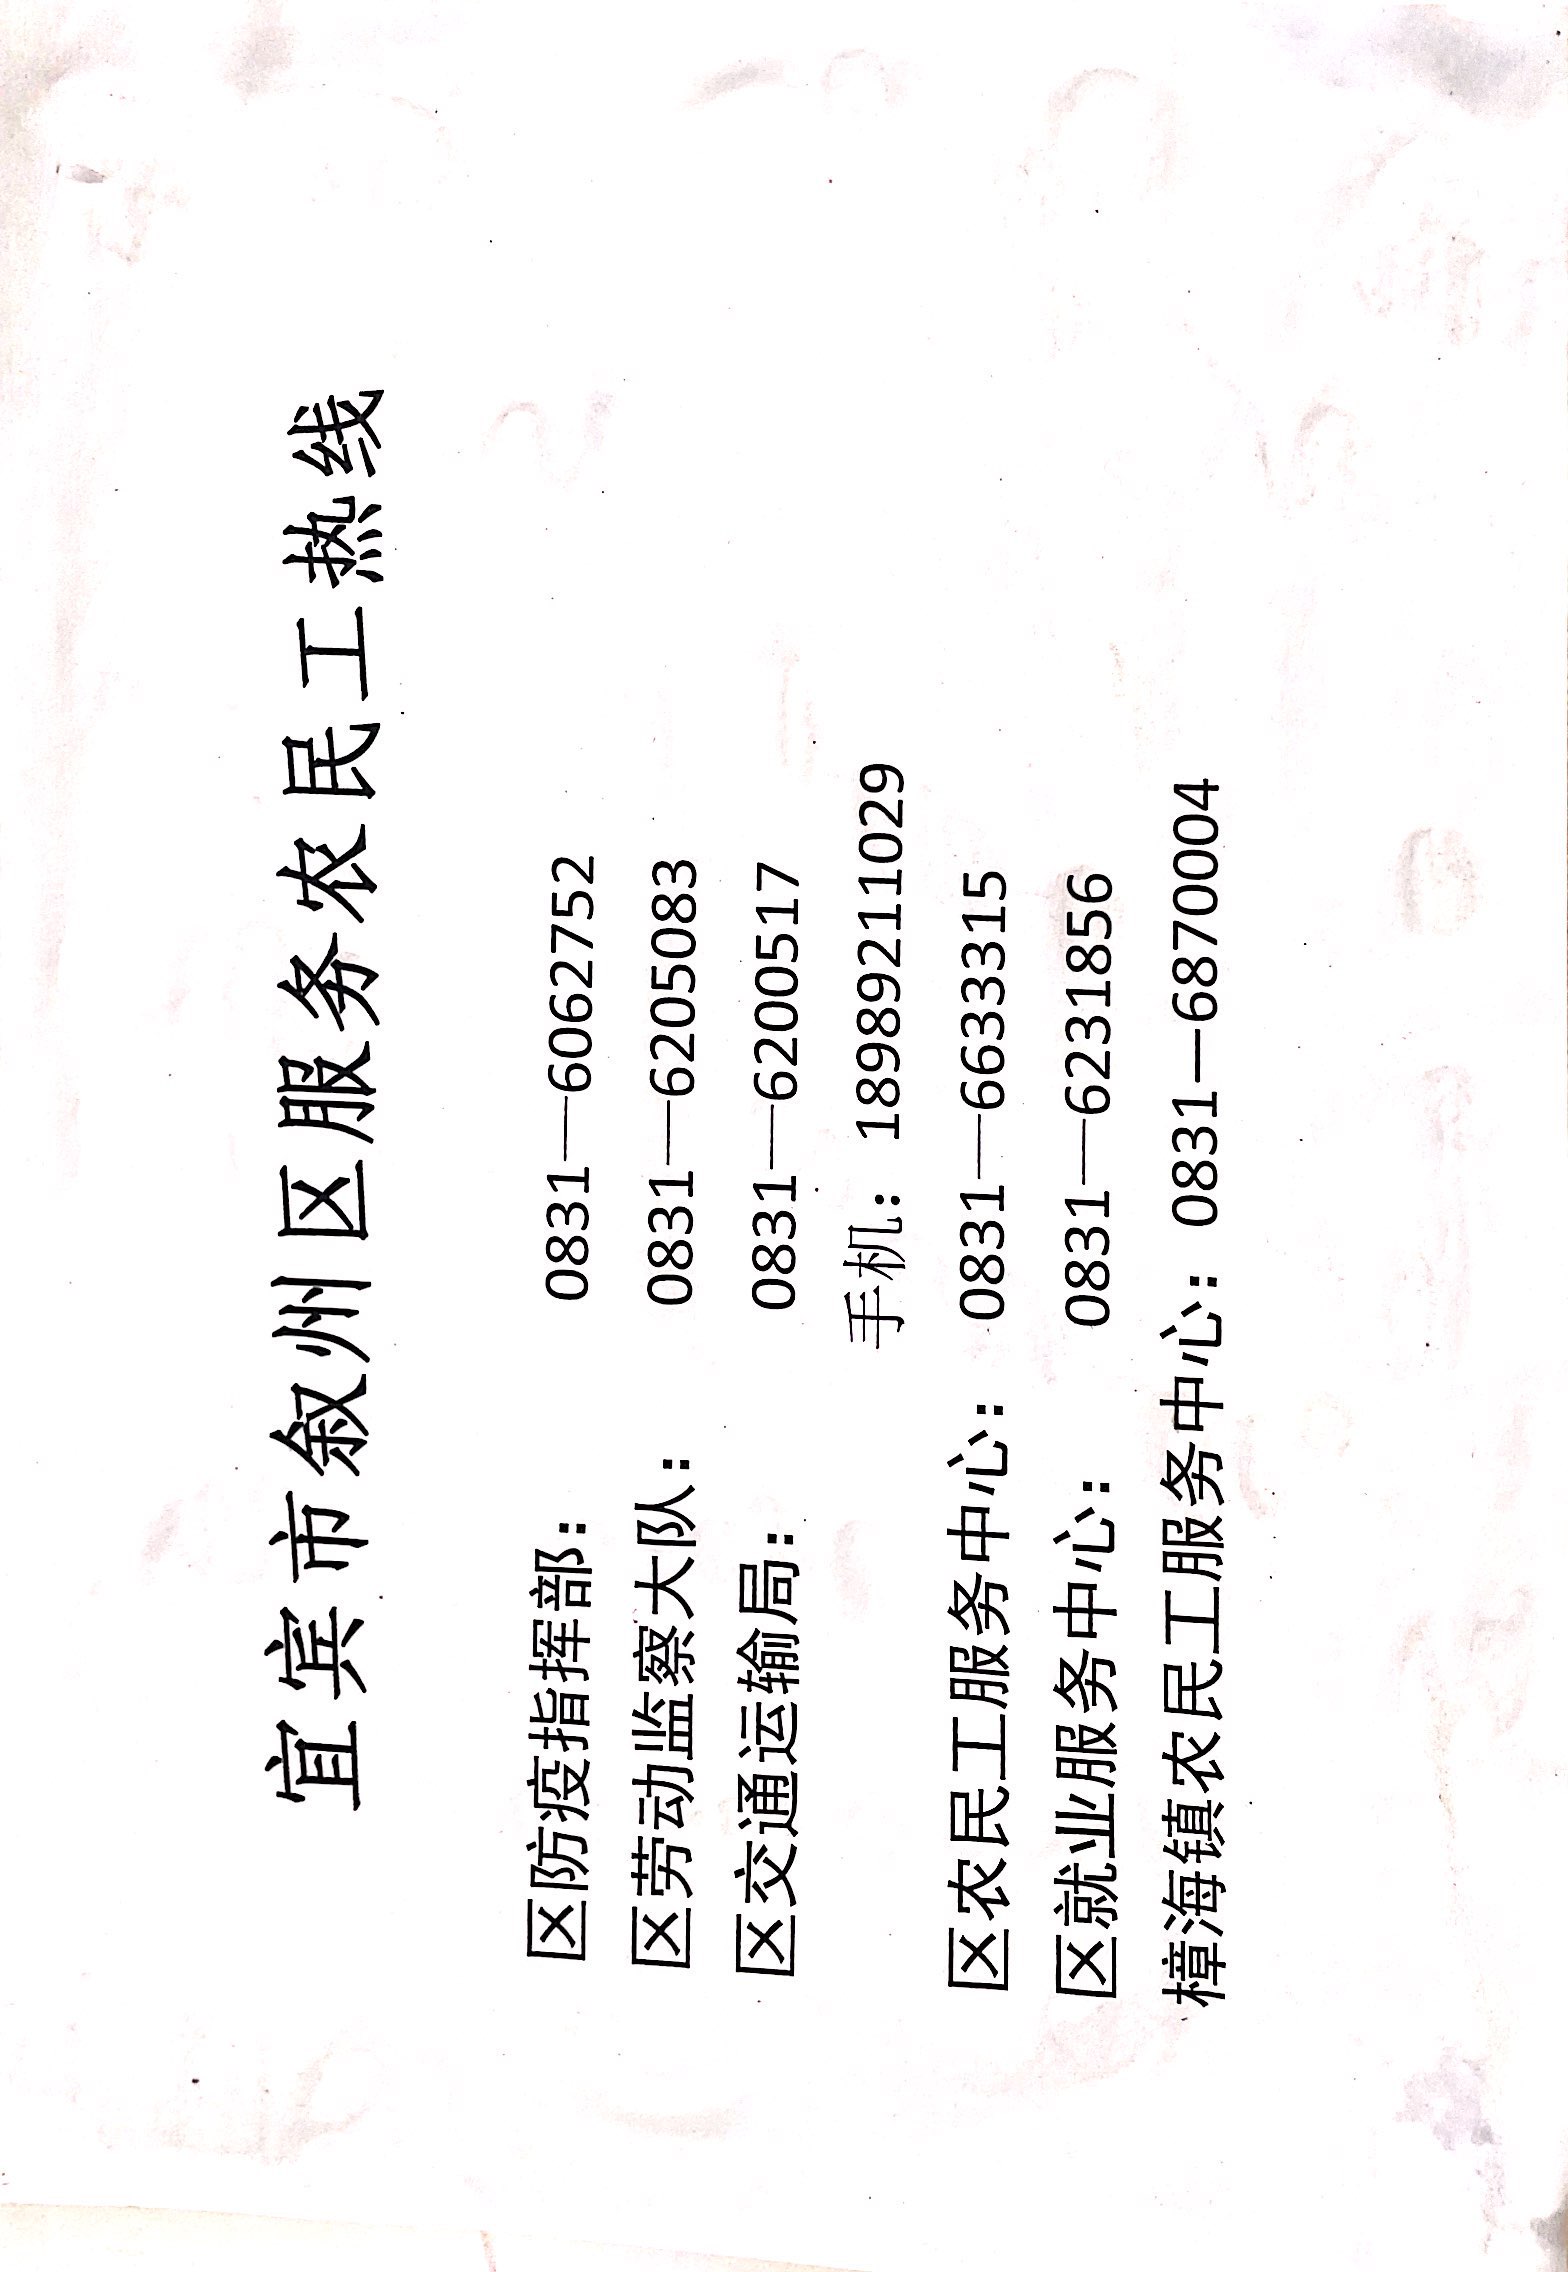 宜宾市叙州区服务农民工热线
区防疫指挥部： 0831—6062752
区劳动监察大队： 0831—6205083
区交通运输局： 0831—6200517
手机：18989211029
区农民工服务中心：0831—6633315
区就业服务中心： 0831—6231856
樟海镇农民工服务中心：0831—6870004